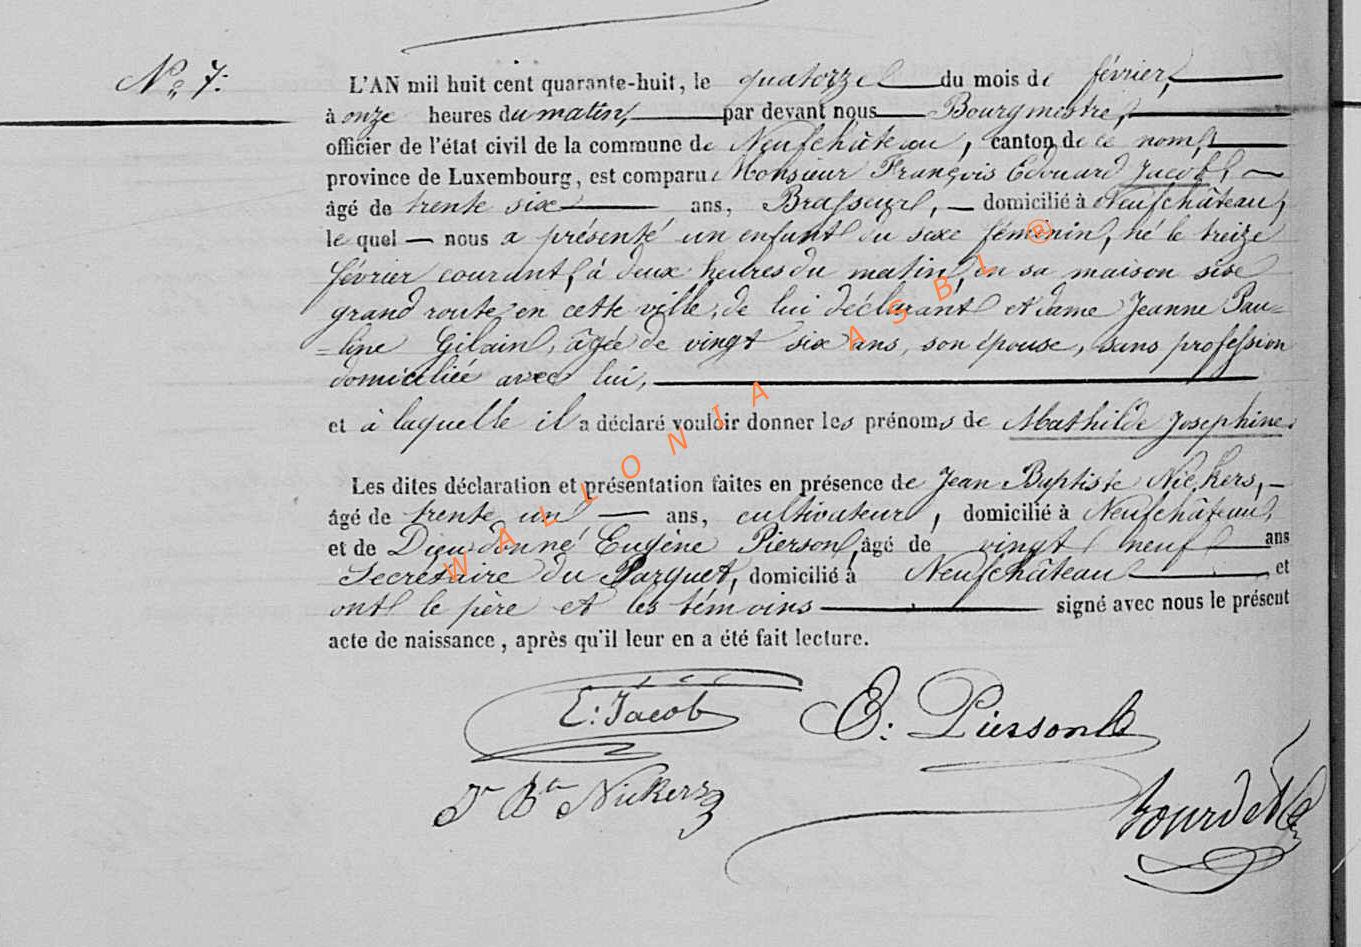 N° 7.
L'AN mil huit cent quarante-huit, le quatorze du mois de février,
à onze heures du matin, par devant nous Bourgmestre,
officier de l'état civil de la commune de Neufchâteau, canton de ce nom,
province de Luxembourg, est comparu Monsieur François Edouard Jacob,
âgé de trente six ans, Brasseur, domicilié à Neufchâteau,
le quel nous a présenté un enfant du sexe féminin, né le treize
février courant, à deux heures du matin, en sa maison sise
grand route en cette ville, de lui déclarant et dame Jeanne Pau=
=line Gilain, âgée de vingt six ans, son épouse, sans profession
domiciliée avec lui,
et à laquelle il a déclaré vouloir donner les prénoms de Mathilde Josephine.
Les dites déclaration et présentation faites en présence de Jean Baptiste Nickers,
âgé de trente un ans, cultivateur, domicilié à Neufchâteau,
et de Dieudonné Eugène Pierson, âgé de vingt neuf ans
Secrétaire du Parquet, domicilié à Neufchâteau et
ont le père et les témoins signé avec nous le présent
acte de naissance, après qu'il leur en a été fait lecture.
E: Jacob
E: Pierson
Jn Bte Nickers
WALLONIA ASBL ®